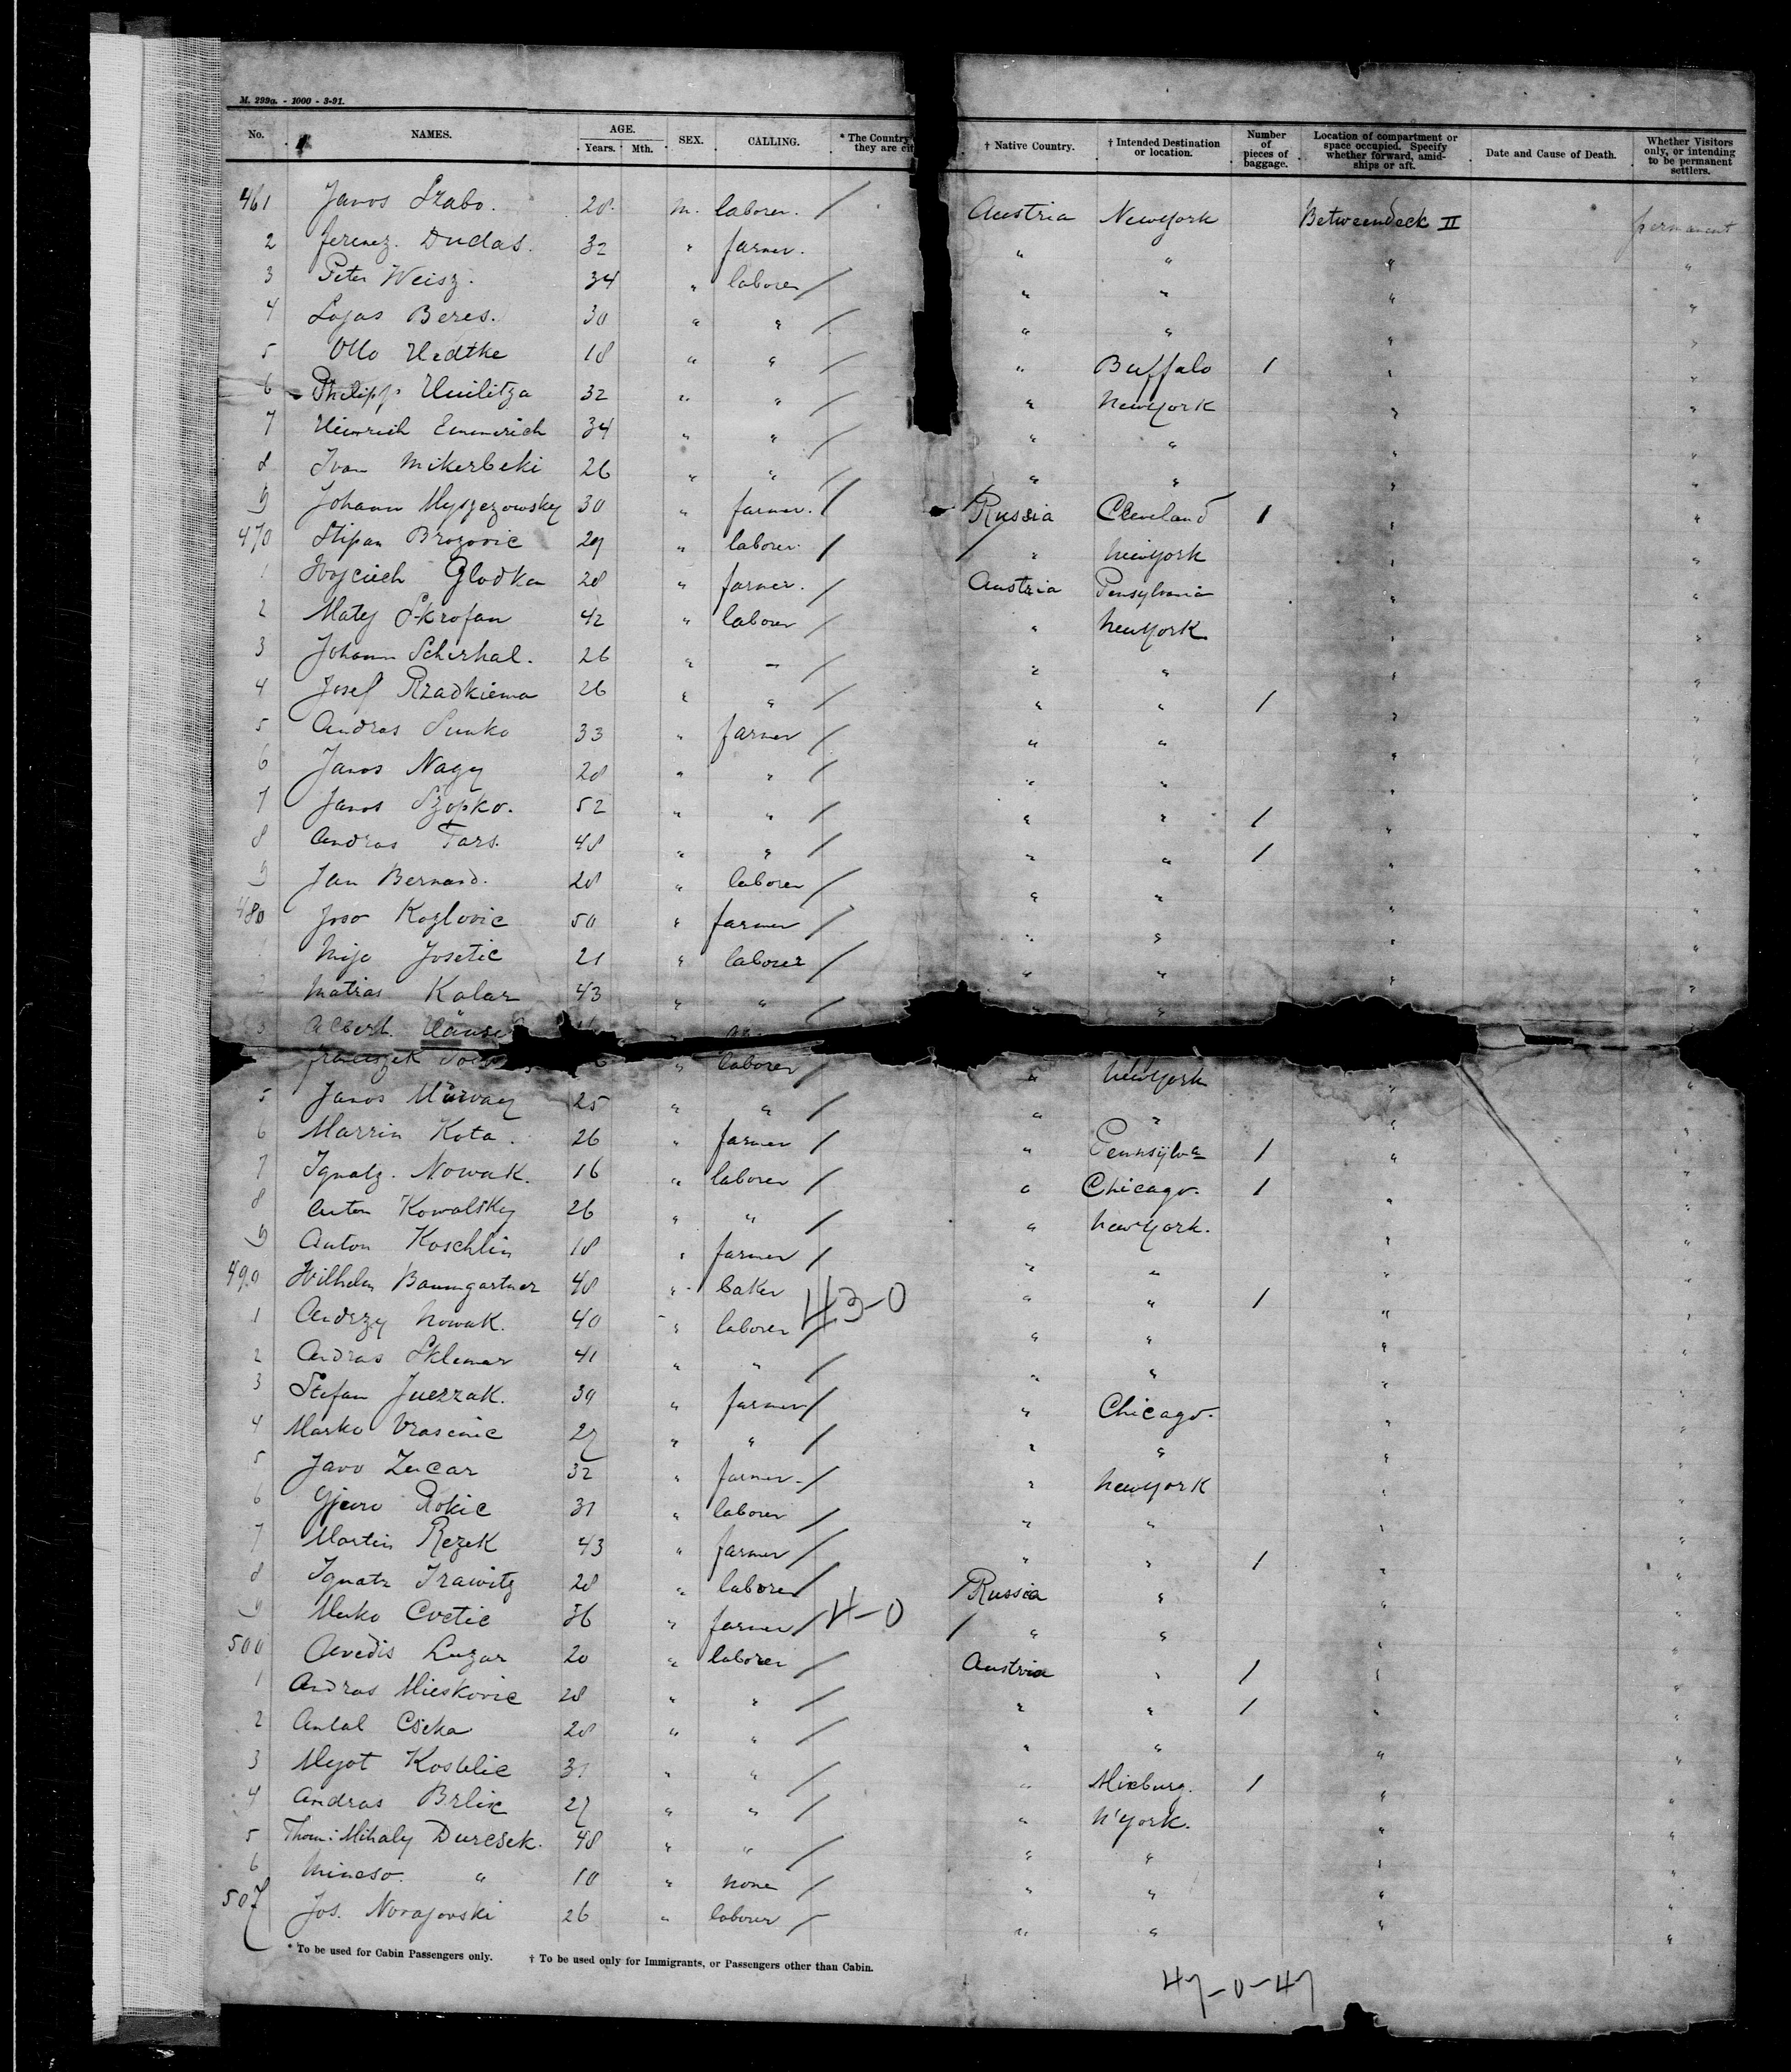 M. 299a. - 1000 - 3-91.
No. NAMES. AGE. Years. Mth. SEX. CALLING. * The Country they are cit † Native Country. † Intended Destination or location. Number of pieces of baggage. Location of compartment or space occupied. Specify whether forward, amidships or aft. Date and Cause of Death. Whether Visitors only, or intending to be permanent settlers.
461 Janos Szabo. 28. m. laborer. / Austria New York Betweendeck II permanent
2 Ferencz. Dudas. 32 " farmer. " " " "
3 Peter Weisz. 34 " laborer / " " " "
4 Lajas Beres. 30 " " / " " " "
5 Otto Hedtke 18 " " / " Buffalo 1 " "
6 Philipp 32 " " / " New York " "
7 Heinrich Emmerich 34 " " / " " " "
8 Ivan Mikerbeki 26 " " / " " " "
9 Johann Myszezowsky 30 " farmer. / Russia Cleveland 1 " "
470 Stipan Brozovic 29 " laborer / " New York " "
1 Wojciech Glodka 28 " farmer. / Austria Pensylvania " "
2 Matej Skrofan 42 " laborer / " New York " "
3 Johann Scherhal. 26 " " / " " " "
4 Josef Rzadkiema 26 " " / " " 1 " "
5 Andras Sunko 33 " farmer / " " " "
6 Janos Nagy 28 " " / " " " "
7 Janos Szopko. 52 " " / " " 1 " "
8 Andras Tars. 48 " " / " " 1 " "
9 Jan Bernard. 28 " laborer / " " " "
480 Joso Kozlovic 50 " farmer / " " " "
Mijo Josetic 21 " laborer / " " " "
2 Matias Kolar 43 " " / " " "
3 Albert
Franciszek " laborer / " New York " "
5 Janos 25 " " / " " " "
6 Marrin Kota. 26 " farmer / " Pennsylva 1 " "
7 Ignatz. Nowak. 16 " laborer / " Chicago. 1 " "
8 Anton Kowalsky 26 " " / " New York. " "
9 Anton Koschlin 18 " farmer / " " " "
490 Wilhelm Baumgartner 48 " baker 43-0 " " 1 " "
1 Andrzy Nowak. 40 " laborer / " " " "
2 Andras Sklemar 41 " " / " " " "
3 Stefan Juerzak. 39 " farmer / " Chicago. " "
4 Marko Vrasenic 27 " " / " " " "
5 Javo Zucar 32 " farmer. / " New York " "
6 Gjuro Rokic 31 " laborer / " " " "
7 Martin Rezek 43 " farmer / " " 1 " "
8 Ignatz Trawitz 28 " laborer / Russia " " "
9 Marko Cvetic 36 " farmer / 4-0 / " " " "
500 Avedis Luzar 20 " laborer / Austria " 1 " "
1 Andras Mieskovic 28 " " / " " 1 " "
2 Antal Cseka 28 " " / " " " "
3 Myot Kostelic 31 " " / " Mixburg. 1 " "
4 Andras Brlic 27 " " / " N'York. " "
5 Thom: Mihaly Durcsek. 48 " " / " " " "
6 " 10 " none / " " " "
507 Jos. Novajovski 26 " laborer / " " " "
* To be used for Cabin Passengers only. † To be used only for Immigrants, or Passengers other than Cabin.
47-0-47